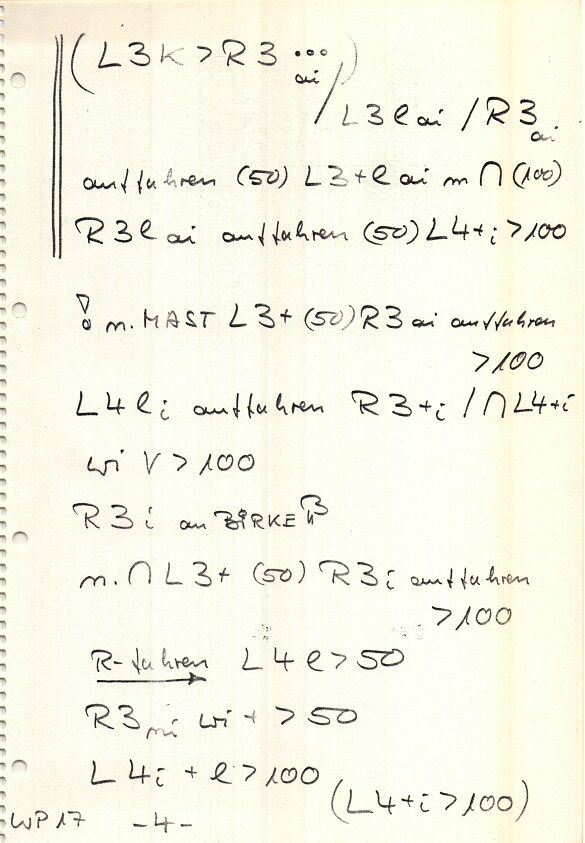 (L3K > R3 ...
ai) / L3l ai / R3 ai
auffahren (50) L3+l ai m ∩ (100)
R3l ai auffahren (50) L4+i > 100
! n. MAST L3+ (50) R3 ai auffahren
> 100
L4li auffahren R3+i / ∩ L4+i
wi V > 100
R3i an BIRKE
n. ∩ L3+ (50) R3i auffahren
> 100
R-fahren L4l > 50
R3 ni wi + > 50
L4i + l > 100
(L4+i > 100)
WP 17 -4-